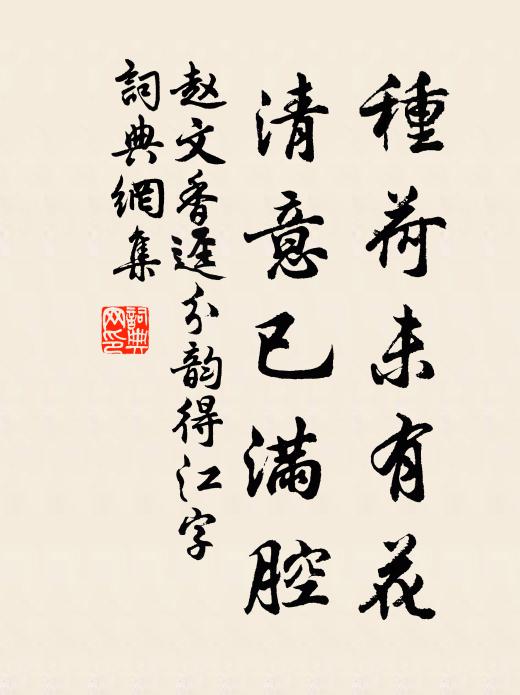 種荷未有花
清意已滿腔
赵文香遲分韵得江字
詞典網集
詞典网印